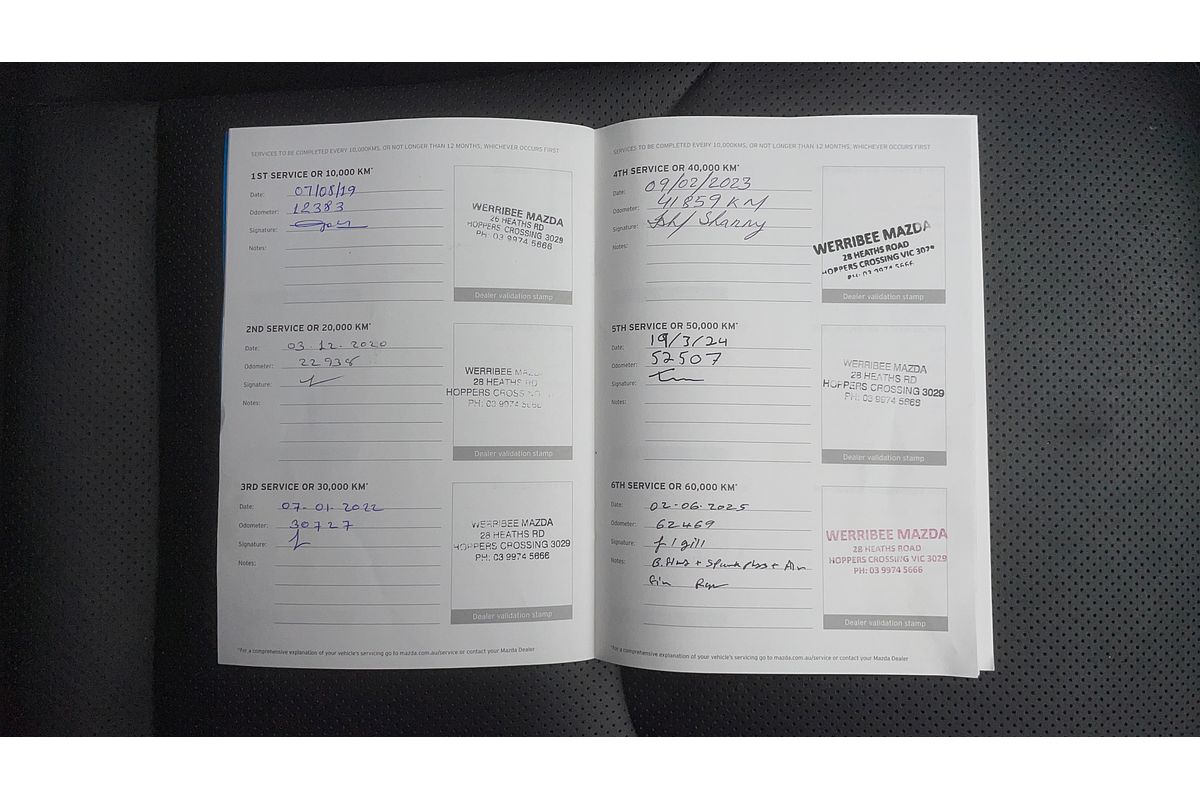 SERVICES TO BE COMPLETED EVERY 10,000KMS, OR NOT LONGER THAN 12 MONTHS, WHICHEVER OCCURS FIRST
1ST SERVICE OR 10,000 KM*
Date: 07/08/19
Odometer: 12383
Signature:
Notes:
WERRIBEE MAZDA
HEATHS RD
HOPPERS CROSSING 3029
PH: 03 9974 5666
Dealer validation stamp
2ND SERVICE OR 20,000 KM*
Date: 03.12.2020
Odometer: 22938
Signature:
Notes:
WERRIBEE
28 HEATHS RD
HOPPERS
PH: 03 9974
Dealer validation stamp
3RD SERVICE OR 30,000 KM*
Date: 07-01-2022
Odometer: 30727
Signature:
Notes:
WERRIBEE MAZDA
28 HEATHS RD
HOPPERS CROSSING 3029
PH: 03 9974 5666
Dealer validation stamp
*For a comprehensive explanation of your vehicle's servicing go to mazda.com.au/service or contact your Mazda Dealer
SERVICES TO BE COMPLETED EVERY 10,000KMS, OR NOT LONGER THAN 12 MONTHS, WHICHEVER OCCURS FIRST
4TH SERVICE OR 40,000 KM*
Date: 09/02/2023
Odometer: 41859 KM
Signature:
Notes:
WERRIBEE MAZDA
28 HEATHS ROAD
HOPPERS CROSSING VIC 3029
PH: 03 9974 5666
Dealer validation stamp
5TH SERVICE OR 50,000 KM*
Date: 19/3/24
Odometer: 52507
Signature:
Notes:
WERRIBEE MAZDA
28 HEATHS RD
HOPPERS CROSSING 3029
PH: 03 9974 5666
Dealer validation stamp
6TH SERVICE OR 60,000 KM*
Date: 02-06-2025
Odometer: 62469
Signature: gill
Notes: +
WERRIBEE MAZDA
28 HEATHS ROAD
HOPPERS CROSSING VIC 3029
PH: 03 9974 5666
Dealer validation stamp
*For a comprehensive explanation of your vehicle's servicing go to mazda.com.au/service or contact your Mazda Dealer